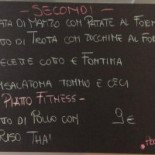 - SECONDI -
ATA DI MANZO CON PATATE AL FORN
TTO DI TROTA CON ZUCCHINE AL FOR
ELETTE COTTO E FONTINA
INSALATONA TONNO E CECI
PIATTO FITNESS -
TTO DI POLLO CON
RISO THAI
9€